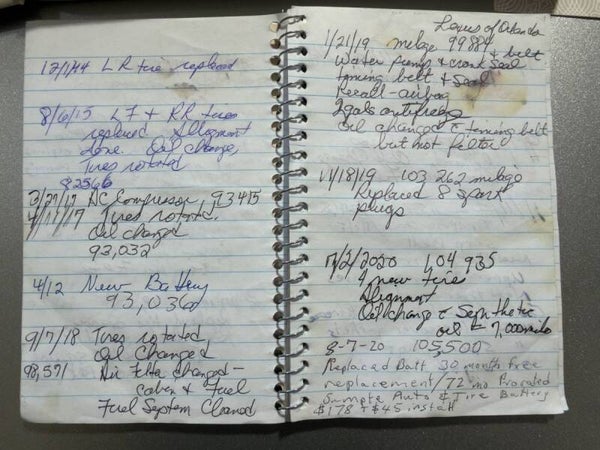 12/1/14 L R tire replaced
8/6/15 LF + RR tires
replaced Alignment
done. Oil change,
Tires rotated
82566
3/27/17 AC Compressor, 93415
4/17/17 Tires rotated.
Oil changed
93,032
4/12 New Battery
93,036
9/7/18 Tires rotated,
Oil Changed,
98,571 Air filter changed -
cabin & Fuel
Fuel System Cleaned
Lexus of Orlando
1/21/19 milage 99884
Water pump & crank Seal & belt
timing belt & Seal
Recall - airbag
2 gals antifreeze
Oil changed c timing belt
but not filter
11/18/19 103 262 milage
Replaced 8 spark
plugs
/2/2020 104 935
4 new tire
Alignment
Oil change c Synthetic
oil = 7,000 mile
8-7-20 105,500
Replaced Batt 30 month free
replacement/72 mo Prorated
Auto & Tire Battery
$178 + $45 install